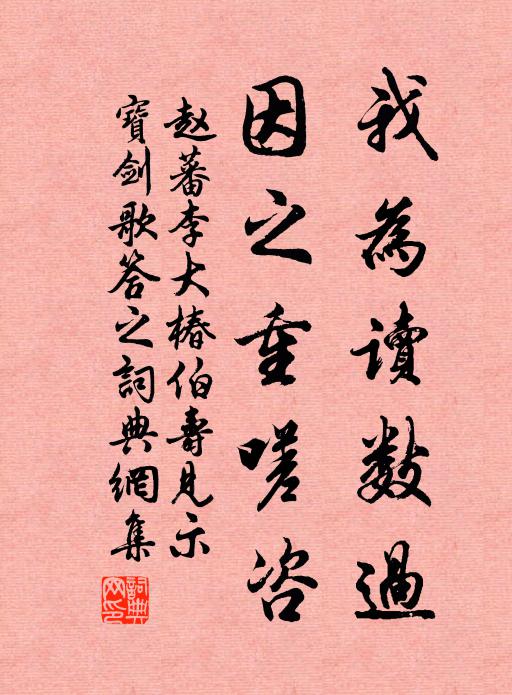 我為讀數過
因之重嗟咨
赵蕃李大椿伯壽見示
寶劍歌答之詞典網集
詞典网印